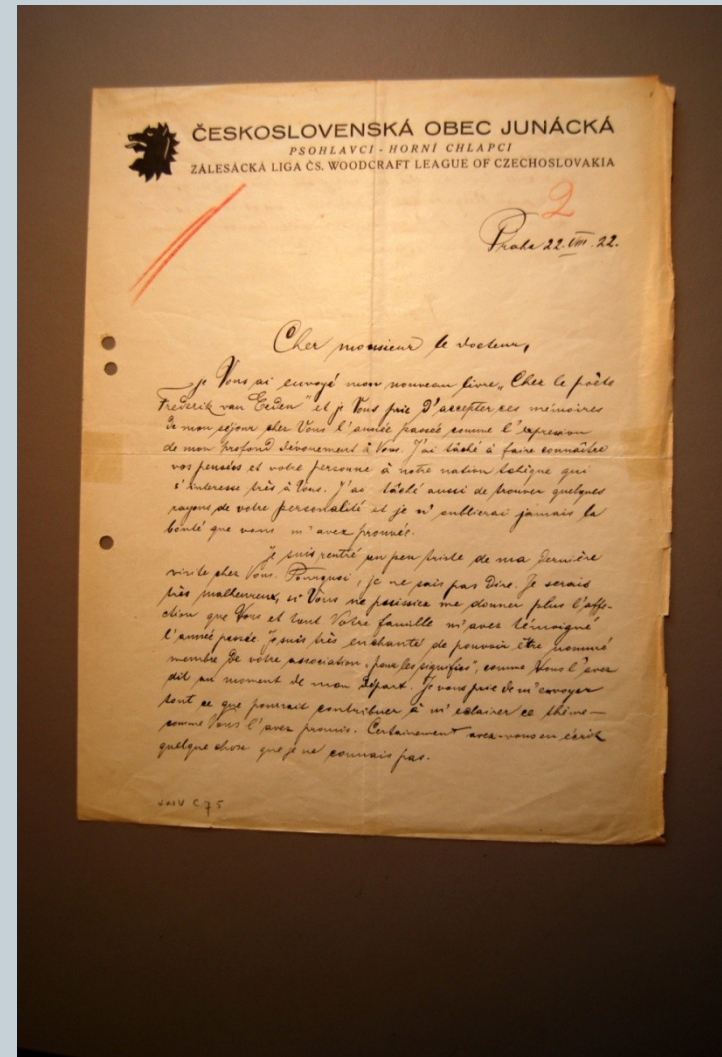 ČESKOSLOVENSKÁ OBEC JUNÁCKÁ
PSOHLAVCI - HORNÍ CHLAPCI
ZÁLESÁCKÁ LIGA ČS. WOODCRAFT LEAGUE OF CZECHOSLOVAKIA
2
Praha 22.VIII.22.
Cher monsieur le docteur,
je Vous ai envoyé mon nouveau livre „Chez le poète
Frederik van Eeden" et je Vous prie d'accepter ces mémoires
de mon séjour chez Vous l'année passée comme l'expression
de mon profond dévouement à Vous. J'ai tâché à faire connaître
vos pensées et votre personne à notre nation tchèque qui
s'interesse très à Vous. J'ai tâché aussi de trouver quelques
rayons de votre personalité et je n'oublierai jamais la
bonté que vous m'avez prouvée.
Je suis rentré un peu triste de ma dernière
visite chez Vous. Pourquoi, je ne sais pas dire. Je serais
très malheureux, si Vous ne puissiez me donner plus l'affe-
ction que Vous et tout Votre famille m'avez témoigné
l'année passée. Je suis très enchanté de pouvoir être nommé
membre de votre association „pour les signifies", comme Vous l'avez
dit au moment de mon départ. Je vous prie de m'envoyer
tout ce que pourrait contribuer à m'éclairer ce thème —
comme Vous l'avez promis. Certainement avez-vous en écrit
quelque chose que je ne connais pas.
C 75